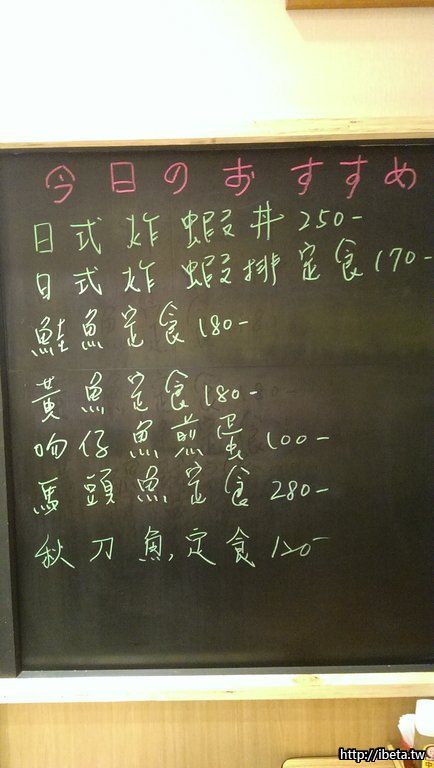 今日のおすすめ
日式炸蝦丼250-
日式炸蝦排定食170-
鮭魚定食180-
黃魚定食180-
吻仔魚煎蛋100-
馬頭魚定食280-
秋刀魚定食120-
http://ibeta.tw